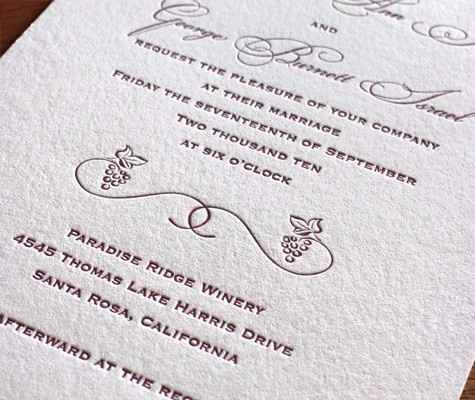 Ann
AND
George Burnett
REQUEST THE PLEASURE OF YOUR COMPANY
AT THEIR MARRIAGE
FRIDAY THE SEVENTEENTH OF SEPTEMBER
TWO THOUSAND TEN
AT SIX O'CLOCK
PARADISE RIDGE WINERY
4545 THOMAS LAKE HARRIS DRIVE
SANTA ROSA, CALIFORNIA
AFTERWARD AT THE